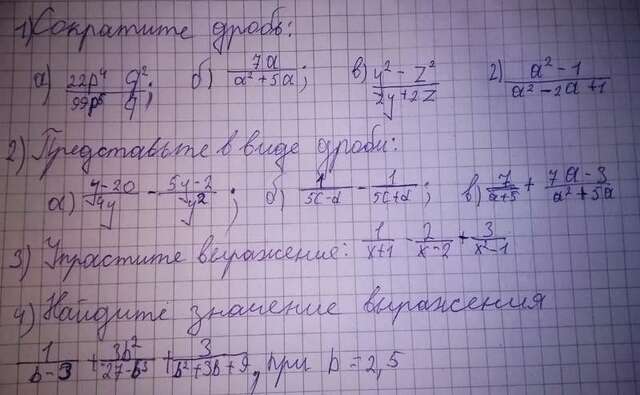 1) Сократите дробь:
а) 22p⁴ q²/99p⁵ q; б) 7a/a²+5a; в) y²-z²/2y+2z г) a²-1/a²-2a+1
2) Представьте в виде дроби:
а) y-20/4y - 5y-2/y²; б) 1/5c-d - 1/5c+d; в) 7/a+5 + 7a-3/a²+5a
3) Упрастите выражение: 1/x+1 - 2/x-2 + 3/x²-1
4) Найдите значение выражения
1/b-3 + 3b²/27-b³ + 3/b²+3b+9, при b=2,5